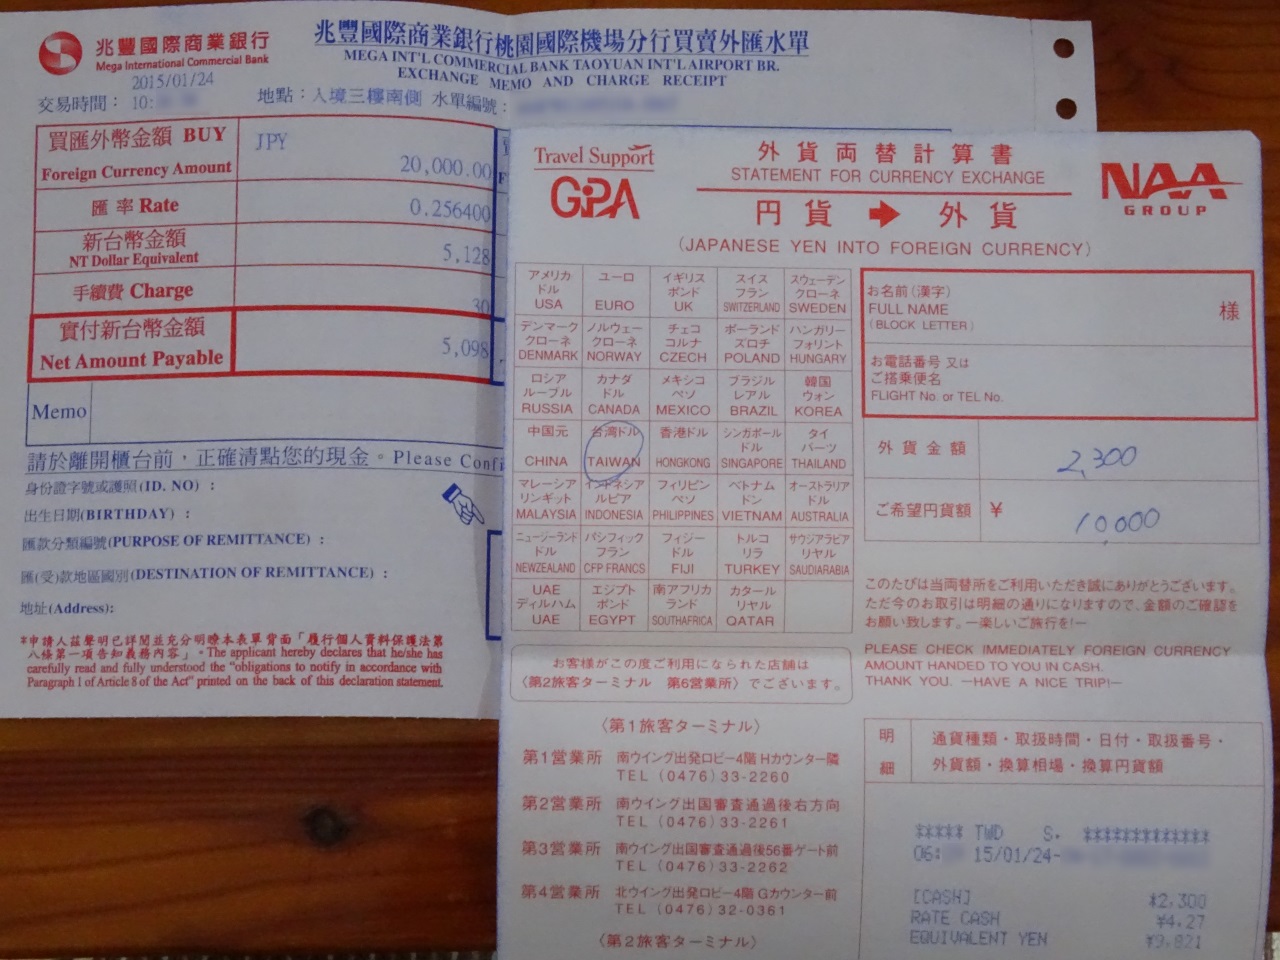 兆豐國際商業銀行
Mega International Commercial Bank
兆豐國際商業銀行桃園國際機場分行買賣外匯水單
MEGA INT'L COMMERCIAL BANK TAOYUAN INT'L AIRPORT BR.
EXCHANGE MEMO AND CHARGE RECEIPT
2015/01/24
交易時間： 10:
地點：入境三樓南側 水單編號：
買匯外幣金額 BUY
Foreign Currency Amount
JPY
20,000.00
匯 率 Rate
0.256400
新台幣金額
NT Dollar Equivalent
5,128
手續費 Charge
30
實付新台幣金額
Net Amount Payable
5,098
Memo
請於離開櫃台前，正確清點您的現金。Please Confi
身份證字號或護照(ID. NO)：
出生日期(BIRTHDAY)：
匯款分類編號(PURPOSE OF REMITTANCE)：
匯(受)款地區國別(DESTINATION OF REMITTANCE)：
地址(Address):
*申請人茲聲明已詳閱並充分明瞭本表單背面「履行個人資料保護法第
八條第一項告知義務內容」。The applicant hereby declares that he/she has
carefully read and fully understood the "obligations to notify in accordance with
Paragraph 1 of Article 8 of the Act" printed on the back of this declaration statement.
Travel Support
GPA
外貨両替計算書
STATEMENT FOR CURRENCY EXCHANGE
円貨 ➡ 外貨
(JAPANESE YEN INTO FOREIGN CURRENCY)
NAA
GROUP
アメリカ ドル USA
ユーロ EURO
イギリス ポンド UK
スイス フラン SWITZERLAND
スウェーデン クローネ SWEDEN
デンマーク クローネ DENMARK
ノルウェー クローネ NORWAY
チェコ コルナ CZECH
ポーランド ズロチ POLAND
ハンガリー フォリント HUNGARY
ロシア ルーブル RUSSIA
カナダ ドル CANADA
メキシコ ペソ MEXICO
ブラジル レアル BRAZIL
韓国 ウォン KOREA
中国元 CHINA
台湾ドル TAIWAN
香港ドル HONGKONG
シンガポール ドル SINGAPORE
タイ バーツ THAILAND
マレーシア リンギット MALAYSIA
インドネシア ルピア INDONESIA
フィリピン ペソ PHILIPPINES
ベトナム ドン VIETNAM
オーストラリア ドル AUSTRALIA
ニュージーランド ドル NEWZEALAND
パシフィック フラン CFP FRANCS
フィジー ドル FIJI
トルコ リラ TURKEY
サウジアラビア リヤル SAUDIARABIA
UAE ディルハム UAE
エジプト ポンド EGYPT
南アフリカ ランド SOUTHAFRICA
カタール リヤル QATAR
お名前(漢字)
FULL NAME
(BLOCK LETTER)
様
お電話番号 又は
ご搭乗便名
FLIGHT No. or TEL No.
外貨金額
2,300
ご希望円貨額 ¥
10,000
このたびは当両替所をご利用いただき誠にありがとうございます。
ただ今のお取引は明細の通りになりますので、金額のご確認を
お願い致します。ー楽しいご旅行を!ー
PLEASE CHECK IMMEDIATELY FOREIGN CURRENCY
AMOUNT HANDED TO YOU IN CASH.
THANK YOU. —HAVE A NICE TRIP!—
お客様がこの度ご利用になられた店舗は
〈第2旅客ターミナル 第6営業所〉でございます。
〈第1旅客ターミナル〉
第1営業所 南ウイング出発ロビー4階 Hカウンター隣
TEL (0476) 33-2260
第2営業所 南ウイング出国審査通過後右方向
TEL (0476) 33-2261
第3営業所 南ウイング出国審査通過後56番ゲート前
TEL (0476) 33-2262
第4営業所 北ウイング出発ロビー4階 Gカウンター前
TEL (0476) 32-0361
〈第2旅客ターミナル〉
明細
通貨種類・取扱時間・日付・取扱番号・
外貨額・換算相場・換算円貨額
***** TWD S. *************
06: 15/01/24-
[CASH] *2,300
RATE CASH ¥4.27
EQUIVALENT YEN ¥9,821